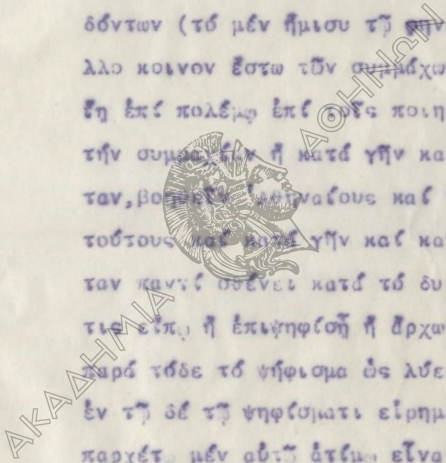 δόντων (τό μέν ἥμισυ τῷ φην
λλο κοινον ἔστω τῶν συμμάχω
ἴῃ ἐπί πολέμῳ ἐπί τούς ποιη
τήν συμμαχίαν ἤ κατά γῆν κα
ταν, βοηθεῖν Ἀθηναίους καί
τούτους καί κατά γῆν καί κατ
ταν παντί σθένει κατά τό δυ
τις εἴπῃ ἤ ἐπιψηφίσῃ ἤ ἄρχω
παρά τόδε τό ψήφισμα ὡς λύε
ἐν τῷ δέ τῷ ψηφίσματι εἰρημ
παρχέτω μέν αὐτῷ ἀτίμῳ εἶνα
ΑΚΑΔΗΜΙΑ
ΑΘΗΝΩΝ